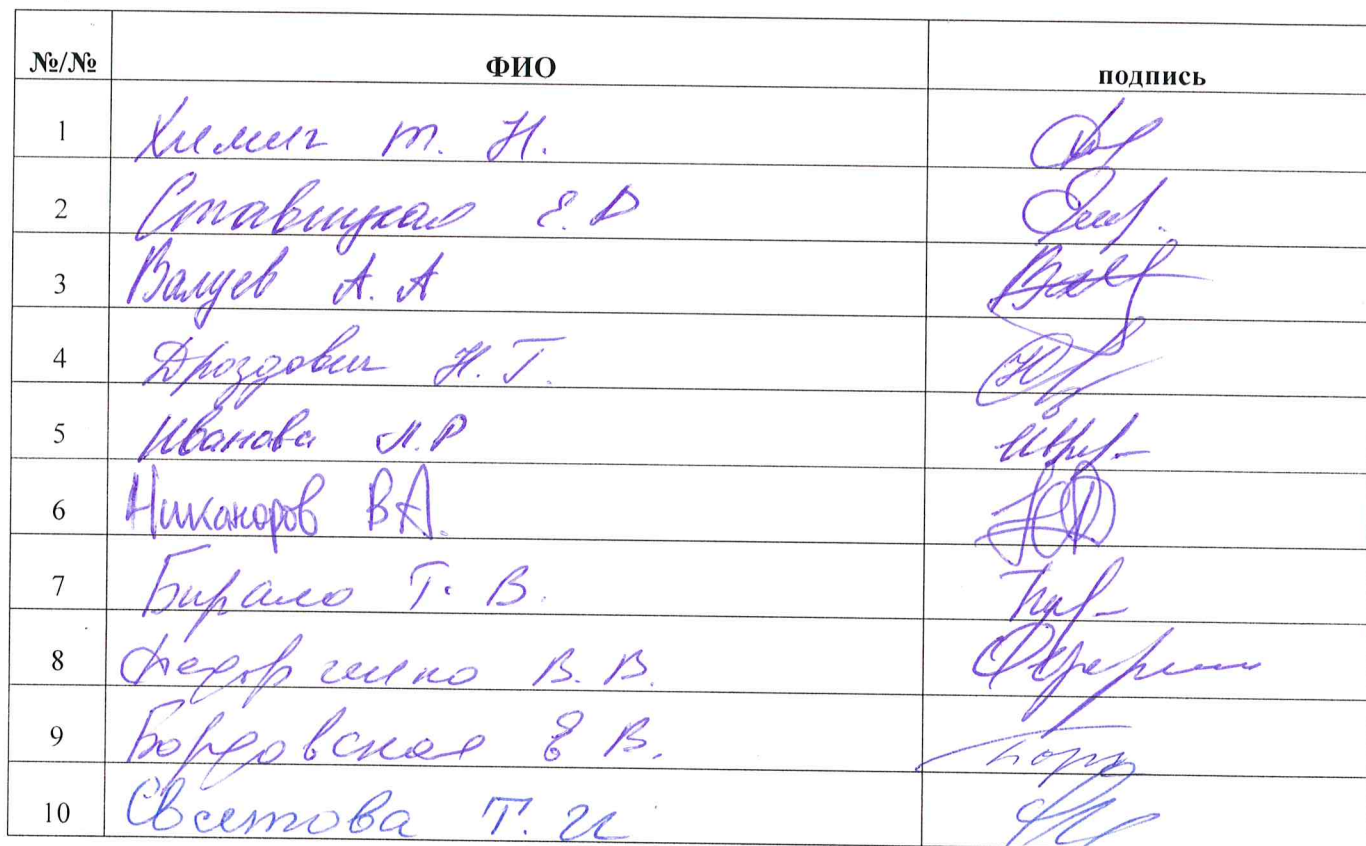 №/№ ФИО подпись
1 Химич Т. Н.
2 Ставицкая Е. Д
3 Валуев А. А
4 Дроздович Н. Г.
5 Иванова Л. Р
6 Никаноров В А.
7 Бирало Т. В.
8 Федорченко В. В.
9 Бордовская Е В.
10 Т. И